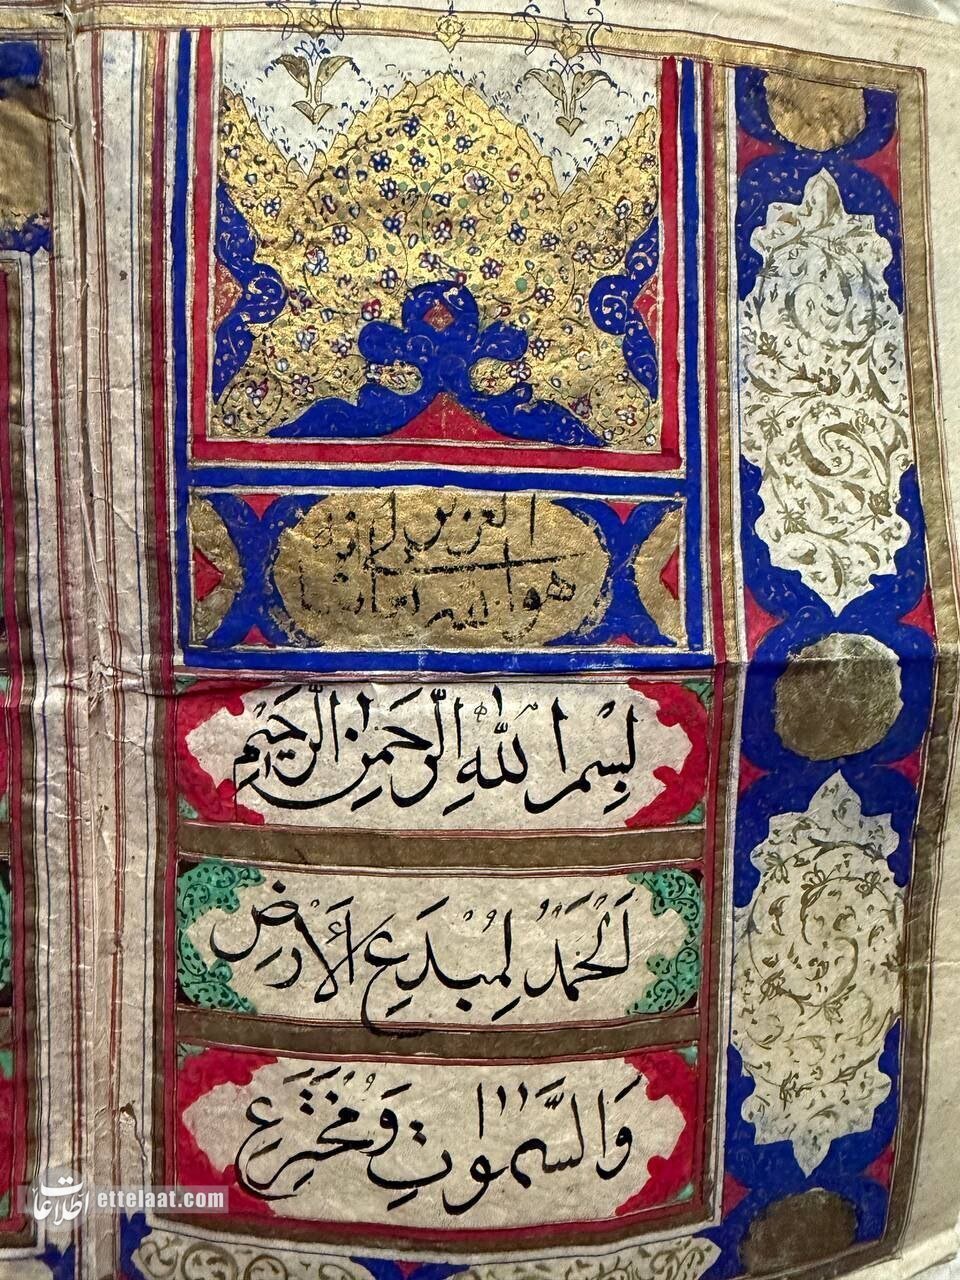 العزيز
هو الله تعالى
بِسْمِ اللهِ الرَّحْمنِ الرَّحِيْمِ
اَلْحَمْدُ لِمُبْدَعِ الْأَرْضِ
وَالسَّمواتِ وَمُخْتَرِعِ
اطلاعات ettelaat.com